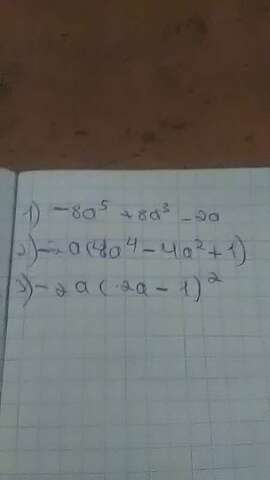 1) -8a⁵ + 8a³ - 2a
2) -2a(4a⁴ - 4a² + 1)
3) -2a(2a - 1)²